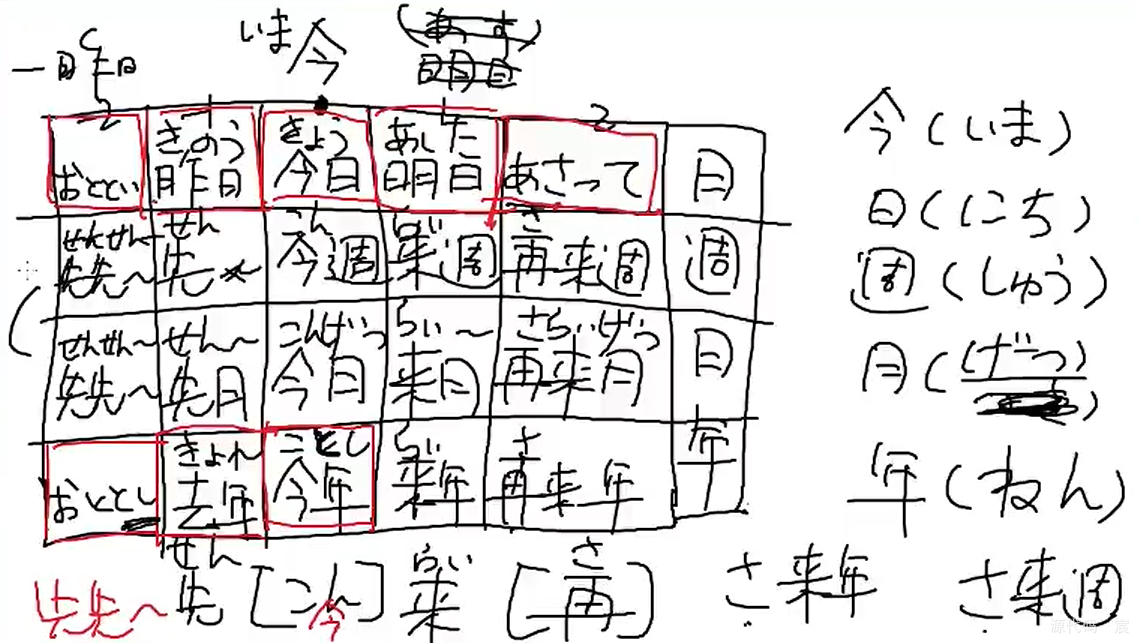 いま 今
一昨日
おととい きのう 昨日 きょう 今日 あした 明日 あさって 日
せんせん 先先～ せん 先～ こん 今週 らい 来週 さ 再来週 週
せんせん～ 先先～ せん～ 先月 こんげつ 今月 らい～ 来月 さらいげつ 再来月 月
おととし きょねん 去年 ことし 今年 らい 来年 さ 再来年 年
先先～ せん 先 [こん] 今 らい 来 [さ 再] さ来年 さ来週
今(いま)
日(にち)
週(しゅう)
月(げつ)
年(ねん)